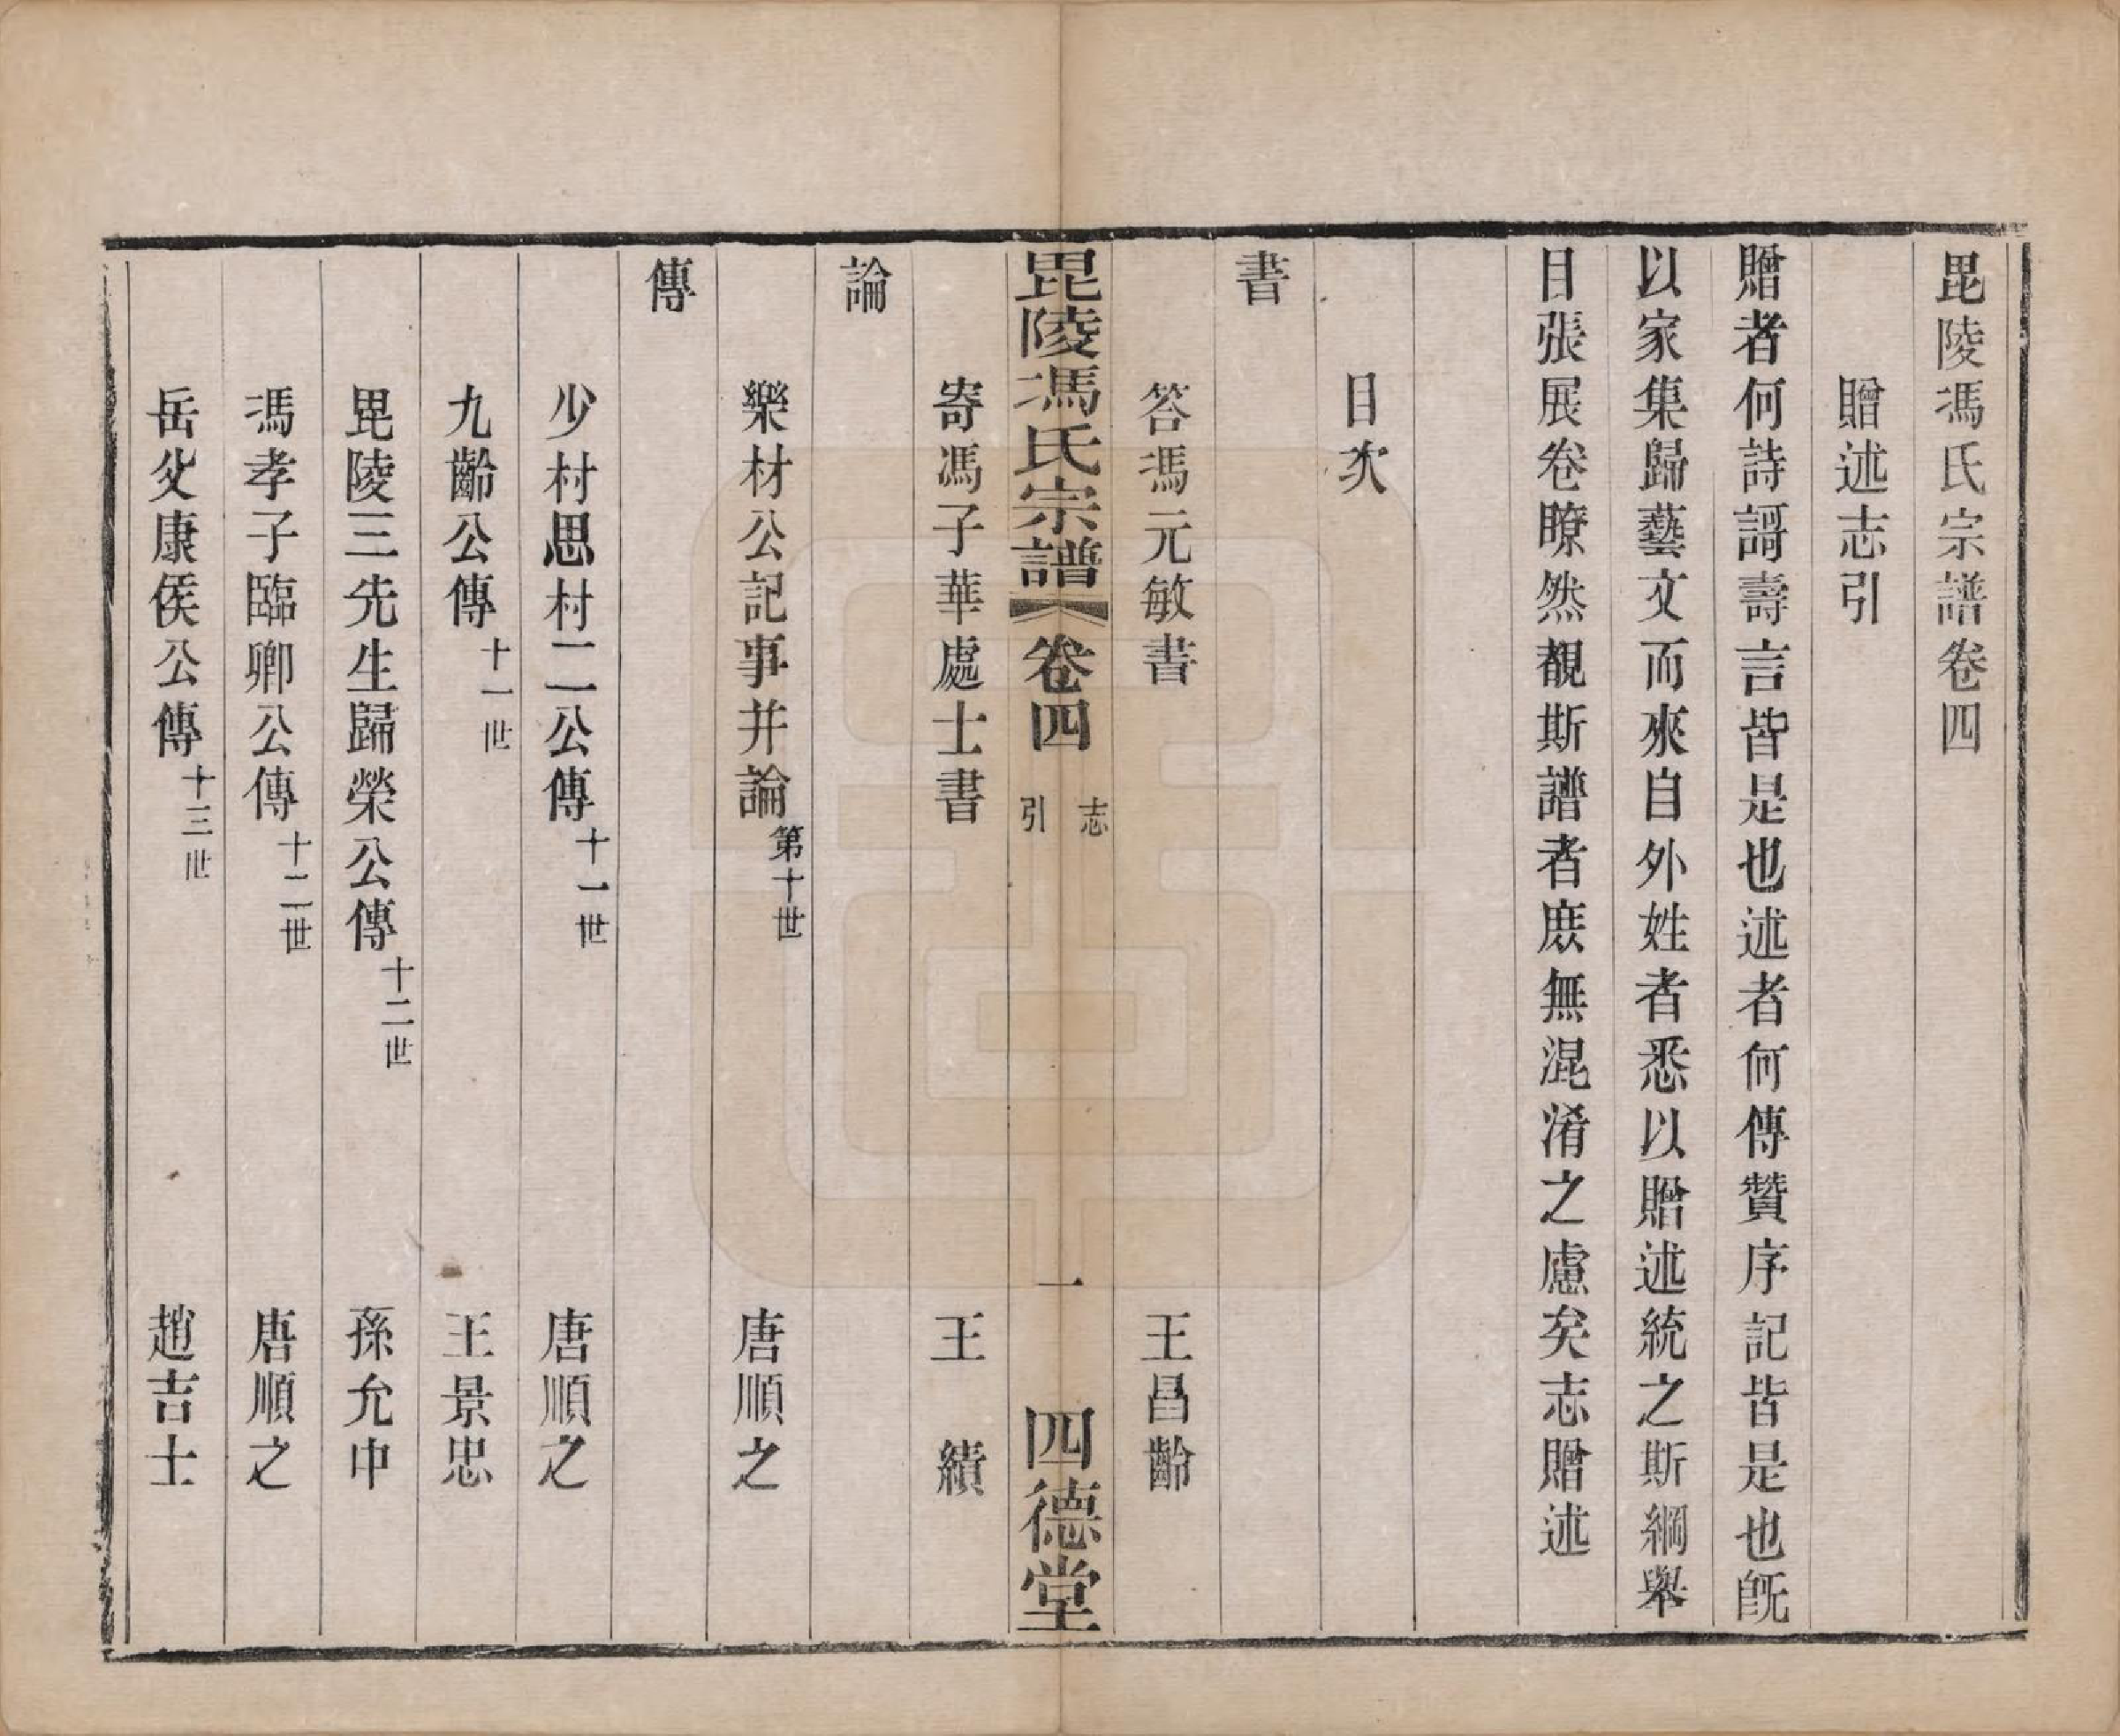 毘陵馮氏宗譜卷四
贈述志引
贈者何詩謌壽言皆是也述者何傳贊序記皆是也旣
以家集歸藝文而來自外姓者悉以贈述統之斯綱舉
目張展卷瞭然覩斯譜者庶無混淆之慮矣志贈述
目次
書
答馮元敏書 王昌齡
毘陵馮氏宗譜 卷四 志引 一 四德堂
寄馮子華處士書 王 績
論
樂材公記事并論 第十世 唐順之
傳
少村思村二公傳 十一世 唐順之
九齡公傳 十一世 王景忠
毘陵三先生歸榮公傳 十二世 孫允中
馮孝子臨卿公傳 十二世 唐順之
岳父康侯公傳 十三世 趙吉士